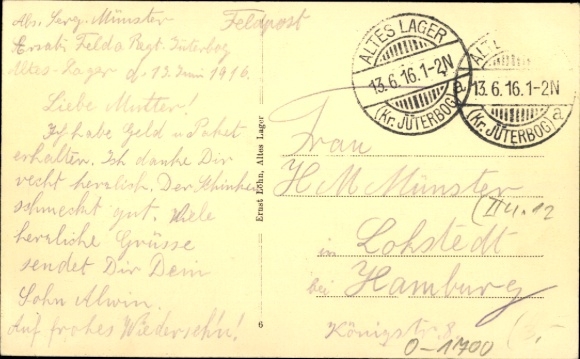 Abs. Serg. Münster
Feldpost
Ersatz Felda Regt. Jüterbog
Altes-Lager d. 13. Juni 1916.
Liebe Mutter!
Ich habe Geld u Paket
erhalten. Ich danke Dir
recht herzlich. Der Schinken
schmeckt gut. Viele
herzliche Grüsse
sendet Dir Dein
Sohn Alwin.
Auf frohes Wiedersehn!
Ernst Löhn, Altes Lager
6
ALTES LAGER
13.6.16.1-2N
a
(Kr. JÜTERBOG)
ALTES LAGER
13.6.16.1-2N
(Kr. JÜTERBOG)
a
Frau
H M Münster
in Lohstedt
bei Hamburg
Königstr. 8
0-1700